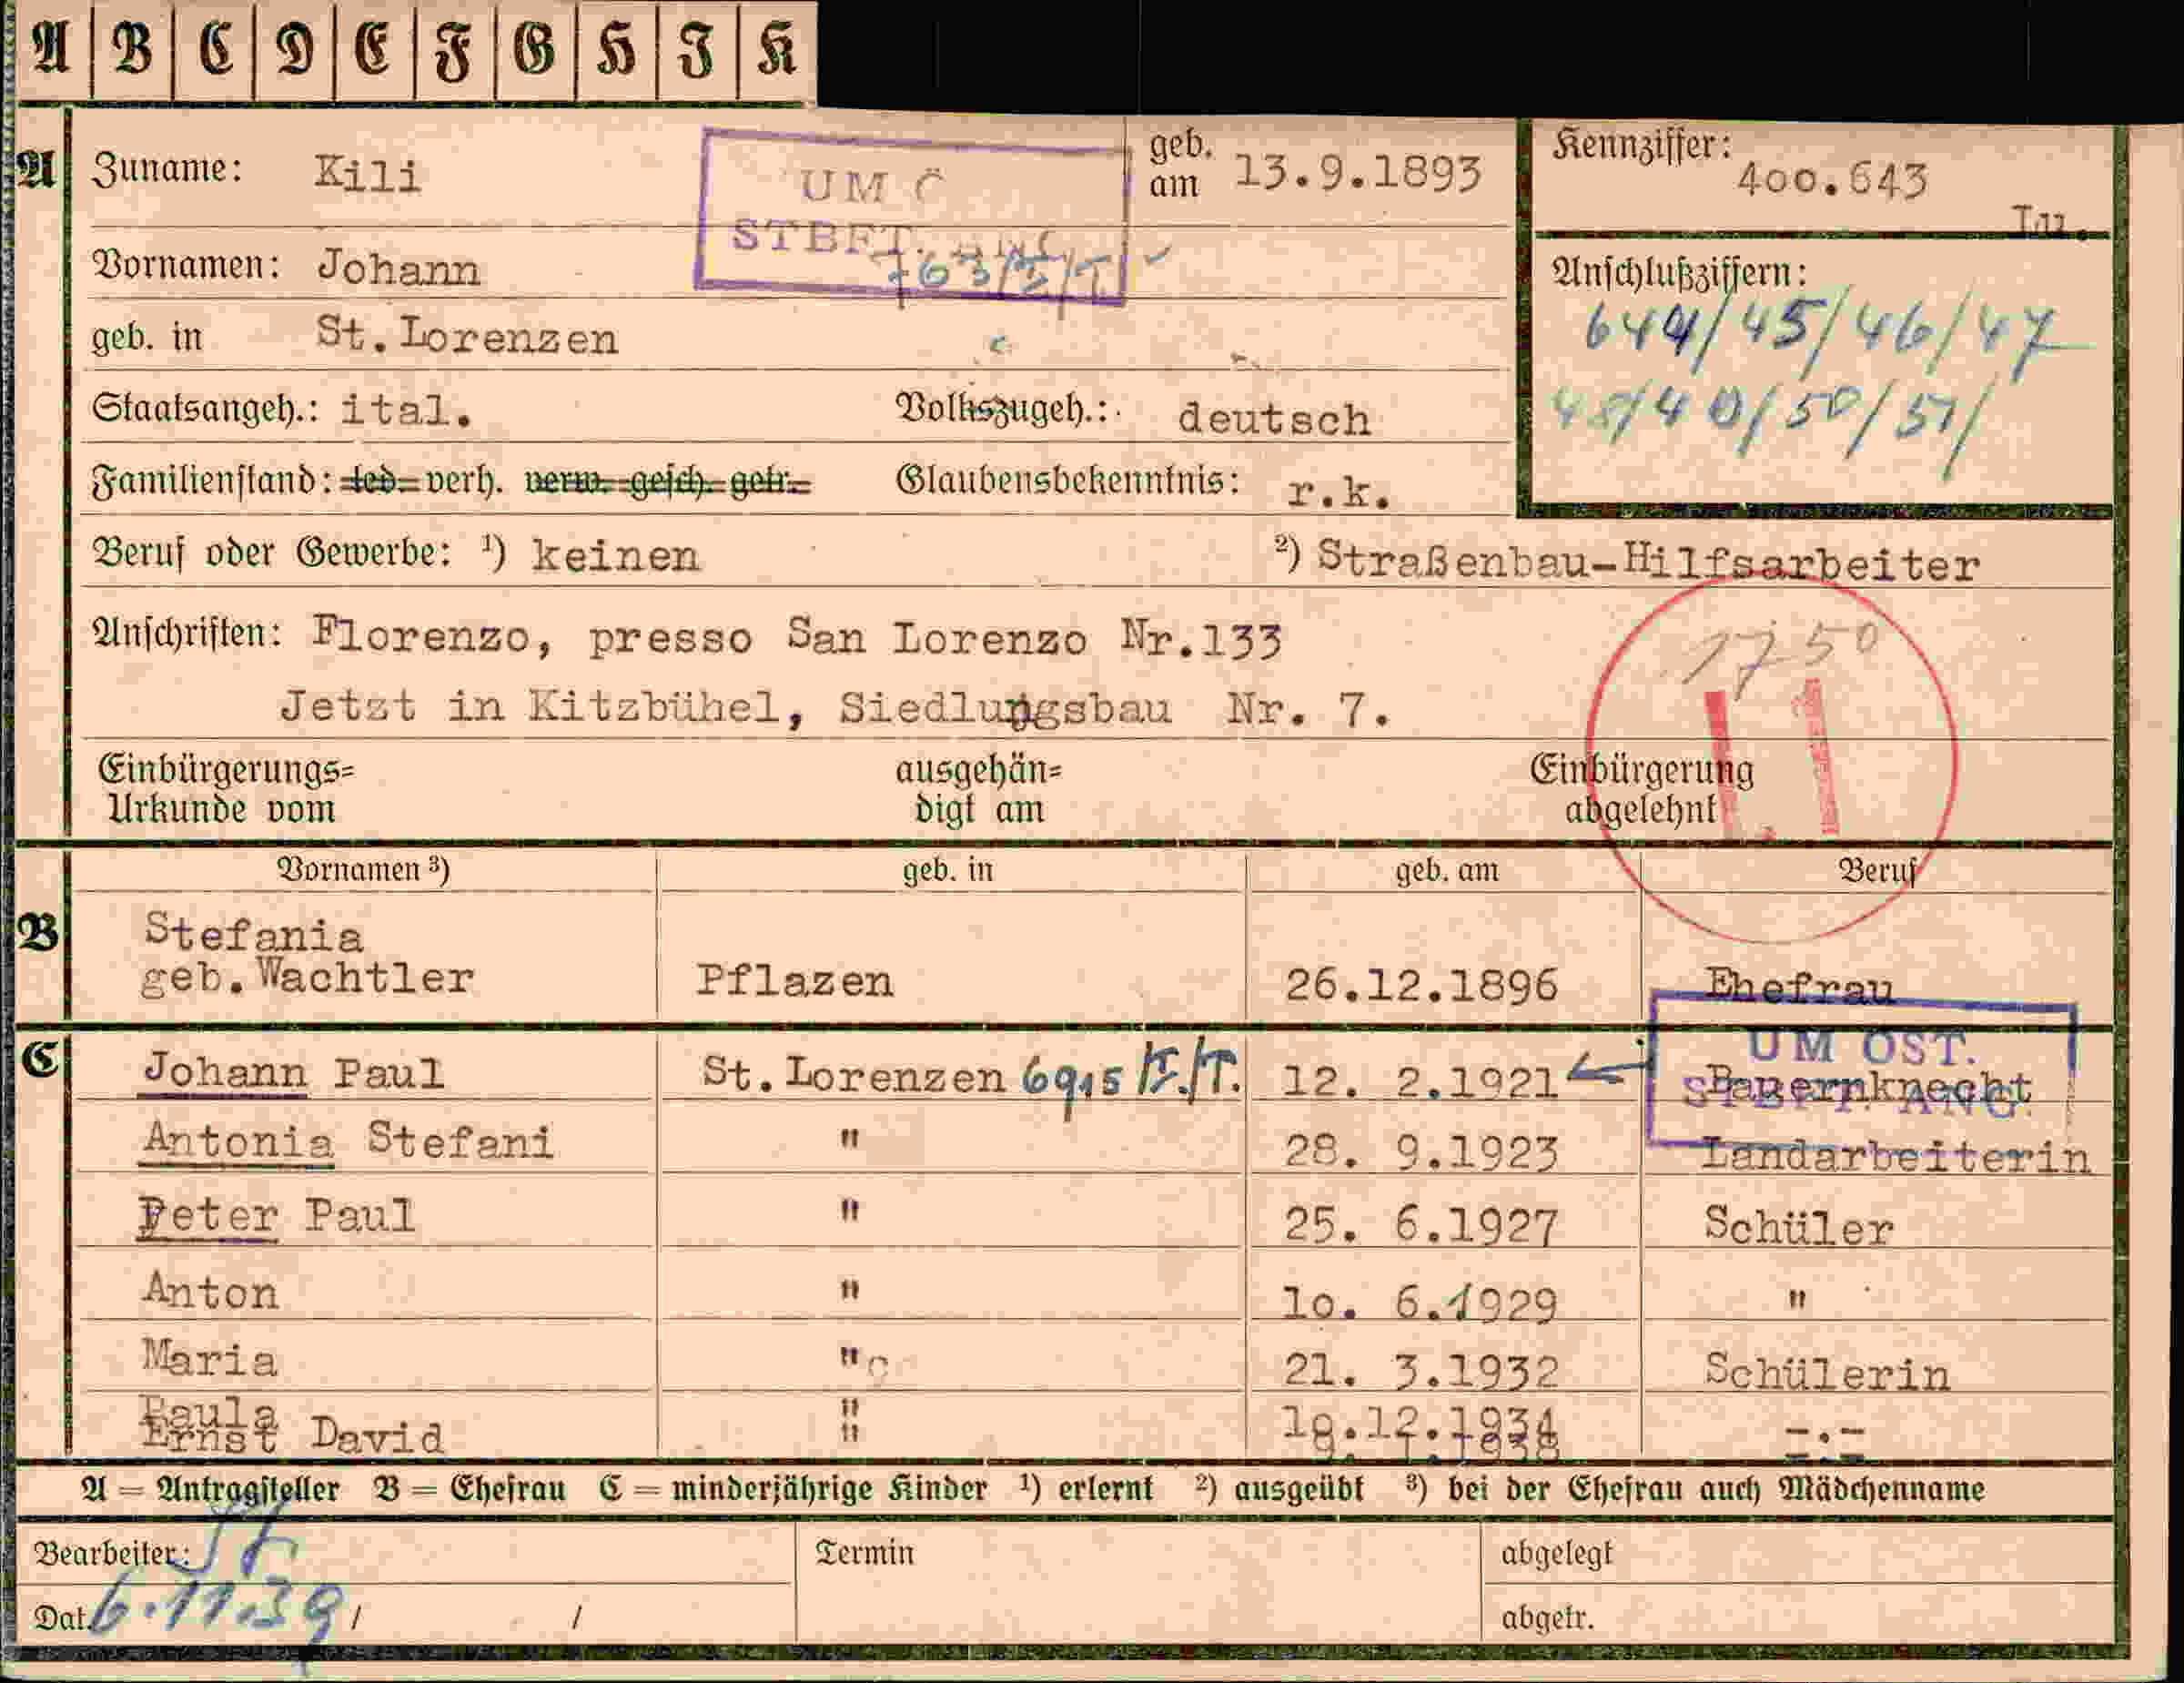 A B C D E F G H J K
A Zuname: Kili
UM Č
STBFT.
geb. am 13.9.1893
Kennziffer: 400.643
Vornamen: Johann
Anschlußziffern:
644/45/46/47
geb. in St.Lorenzen
Staatsangeh.: ital. Volkszugeh.: deutsch
50/51/
Familienstand: led. verh. verw. gesch. getr. Glaubensbekenntnis: r.k.
Beruf oder Gewerbe: ¹) keinen ²) Straßenbau-Hilfsarbeiter
Anschriften: Florenzo, presso San Lorenzo Nr.133
1750
Jetzt in Kitzbühel, Siedlungsbau Nr. 7.
Einbürgerungs=
Urkunde vom
ausgehän=
digt am
Einbürgerung
abgelehnt
Vornamen ³) geb. in geb. am Beruf
B Stefania
geb.Wachtler Pflazen 26.12.1896 Ehefrau
UM ÖST.
C Johann Paul St.Lorenzen 6915 12. 2.1921 Bauernknecht
Antonia Stefani " 28. 9.1923 Landarbeiterin
Peter Paul " 25. 6.1927 Schüler
Anton " 10. 6.1929 "
Maria " 21. 3.1932 Schülerin
Paula "
Ernst David " -.-
A = Antragsteller B = Ehefrau C = minderjährige Kinder ¹) erlernt ²) ausgeübt ³) bei der Ehefrau auch Mädchenname
Bearbeiter: Termin abgelegt
Dat. 6.11.39 / / abgetr.